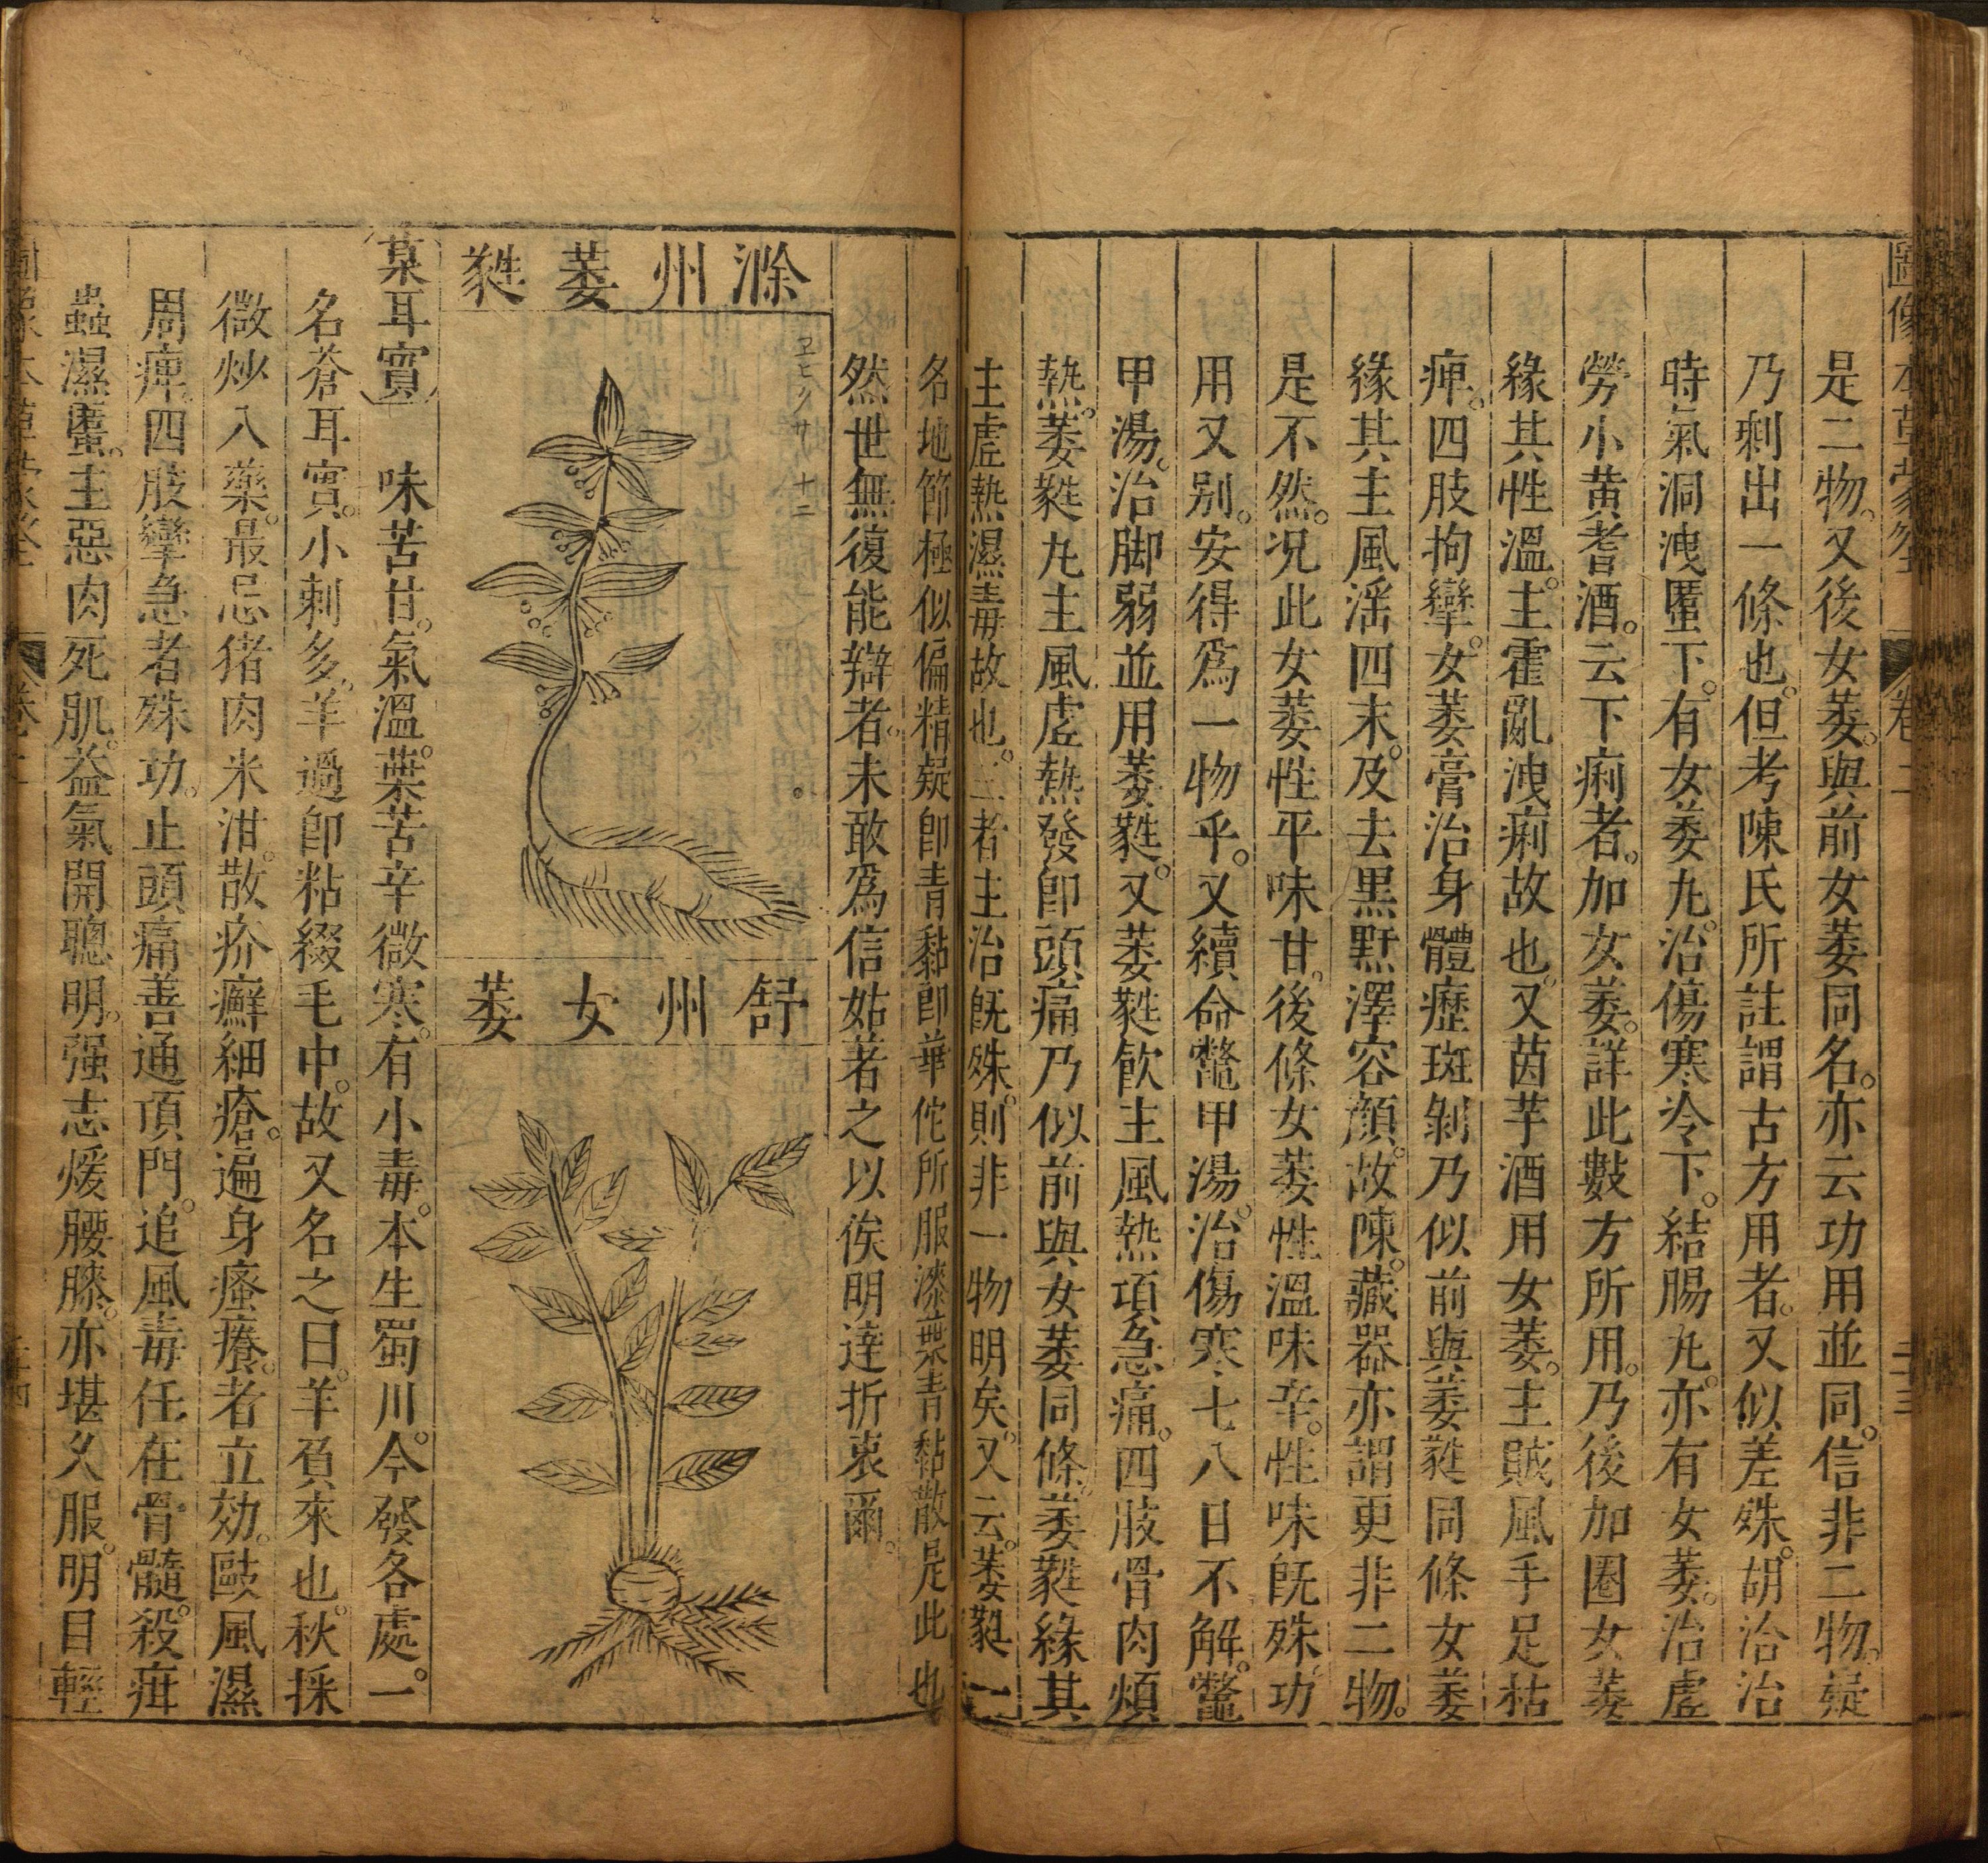 圖像本草蒙筌 卷二 二十三
是二物。又後女萎。與前女萎同名。亦云功用並同。信非二物。疑
乃剩出一條也。但考陳氏所註謂古方用者。又似差殊。胡洽治
時氣洞洩䘌下。有女萎丸。治傷寒冷下。結腸丸。亦有女萎。治虛
勞小黃耆酒。云下痢者。加女萎。詳此數方所用。乃後加圈女萎
緣其性溫。主霍亂洩痢故也。又茵芋酒用女萎。主賊風手足枯
痺。四肢拘攣。女萎膏治身體癧斑剝乃似前與萎蕤同條女萎
緣其主風淫四末。及去黑䵟澤容顏。故陳。藏器亦謂更非二物。
是不然。況此女萎性平味甘。後條女萎性溫味辛。性味既殊。功
用又別。安得爲一物乎。又續命鼈甲湯。治傷寒七八日不解。鼈
甲湯。治脚弱並用萎蕤。又萎蕤飲主風熱項急痛。四肢骨肉煩
熱。萎蕤丸主風虛熱發即頭痛乃似前與女萎同條萎蕤緣其
主虛熱濕毒故也。三者主治既殊。則非一物明矣。又云。萎蕤一
名地節極似偏精疑即青黏即華佗所服漆葉青黏散是此也
然世無復能辯者。未敢爲信姑著之以俟明達折衷爾。
滁州萎蕤
舒州女萎
葈耳實 味苦甘。氣溫。葉苦辛微寒。有小毒。本生蜀川。今發各處。一
名蒼耳實。小刺多。羊過卽粘綴毛中。故又名之曰。羊負來也。秋採
微炒入藥。最忌猪肉米泔。散疥癬細瘡。遍身瘙癢。者立効。敺風濕
周痺。四肢攣急者殊功。止頭痛善通頂門。追風毒任在骨髓。殺疳
蟲濕䘌。主惡肉死肌。益氣開聰明。强志煖腰膝。亦堪久服。明目輕